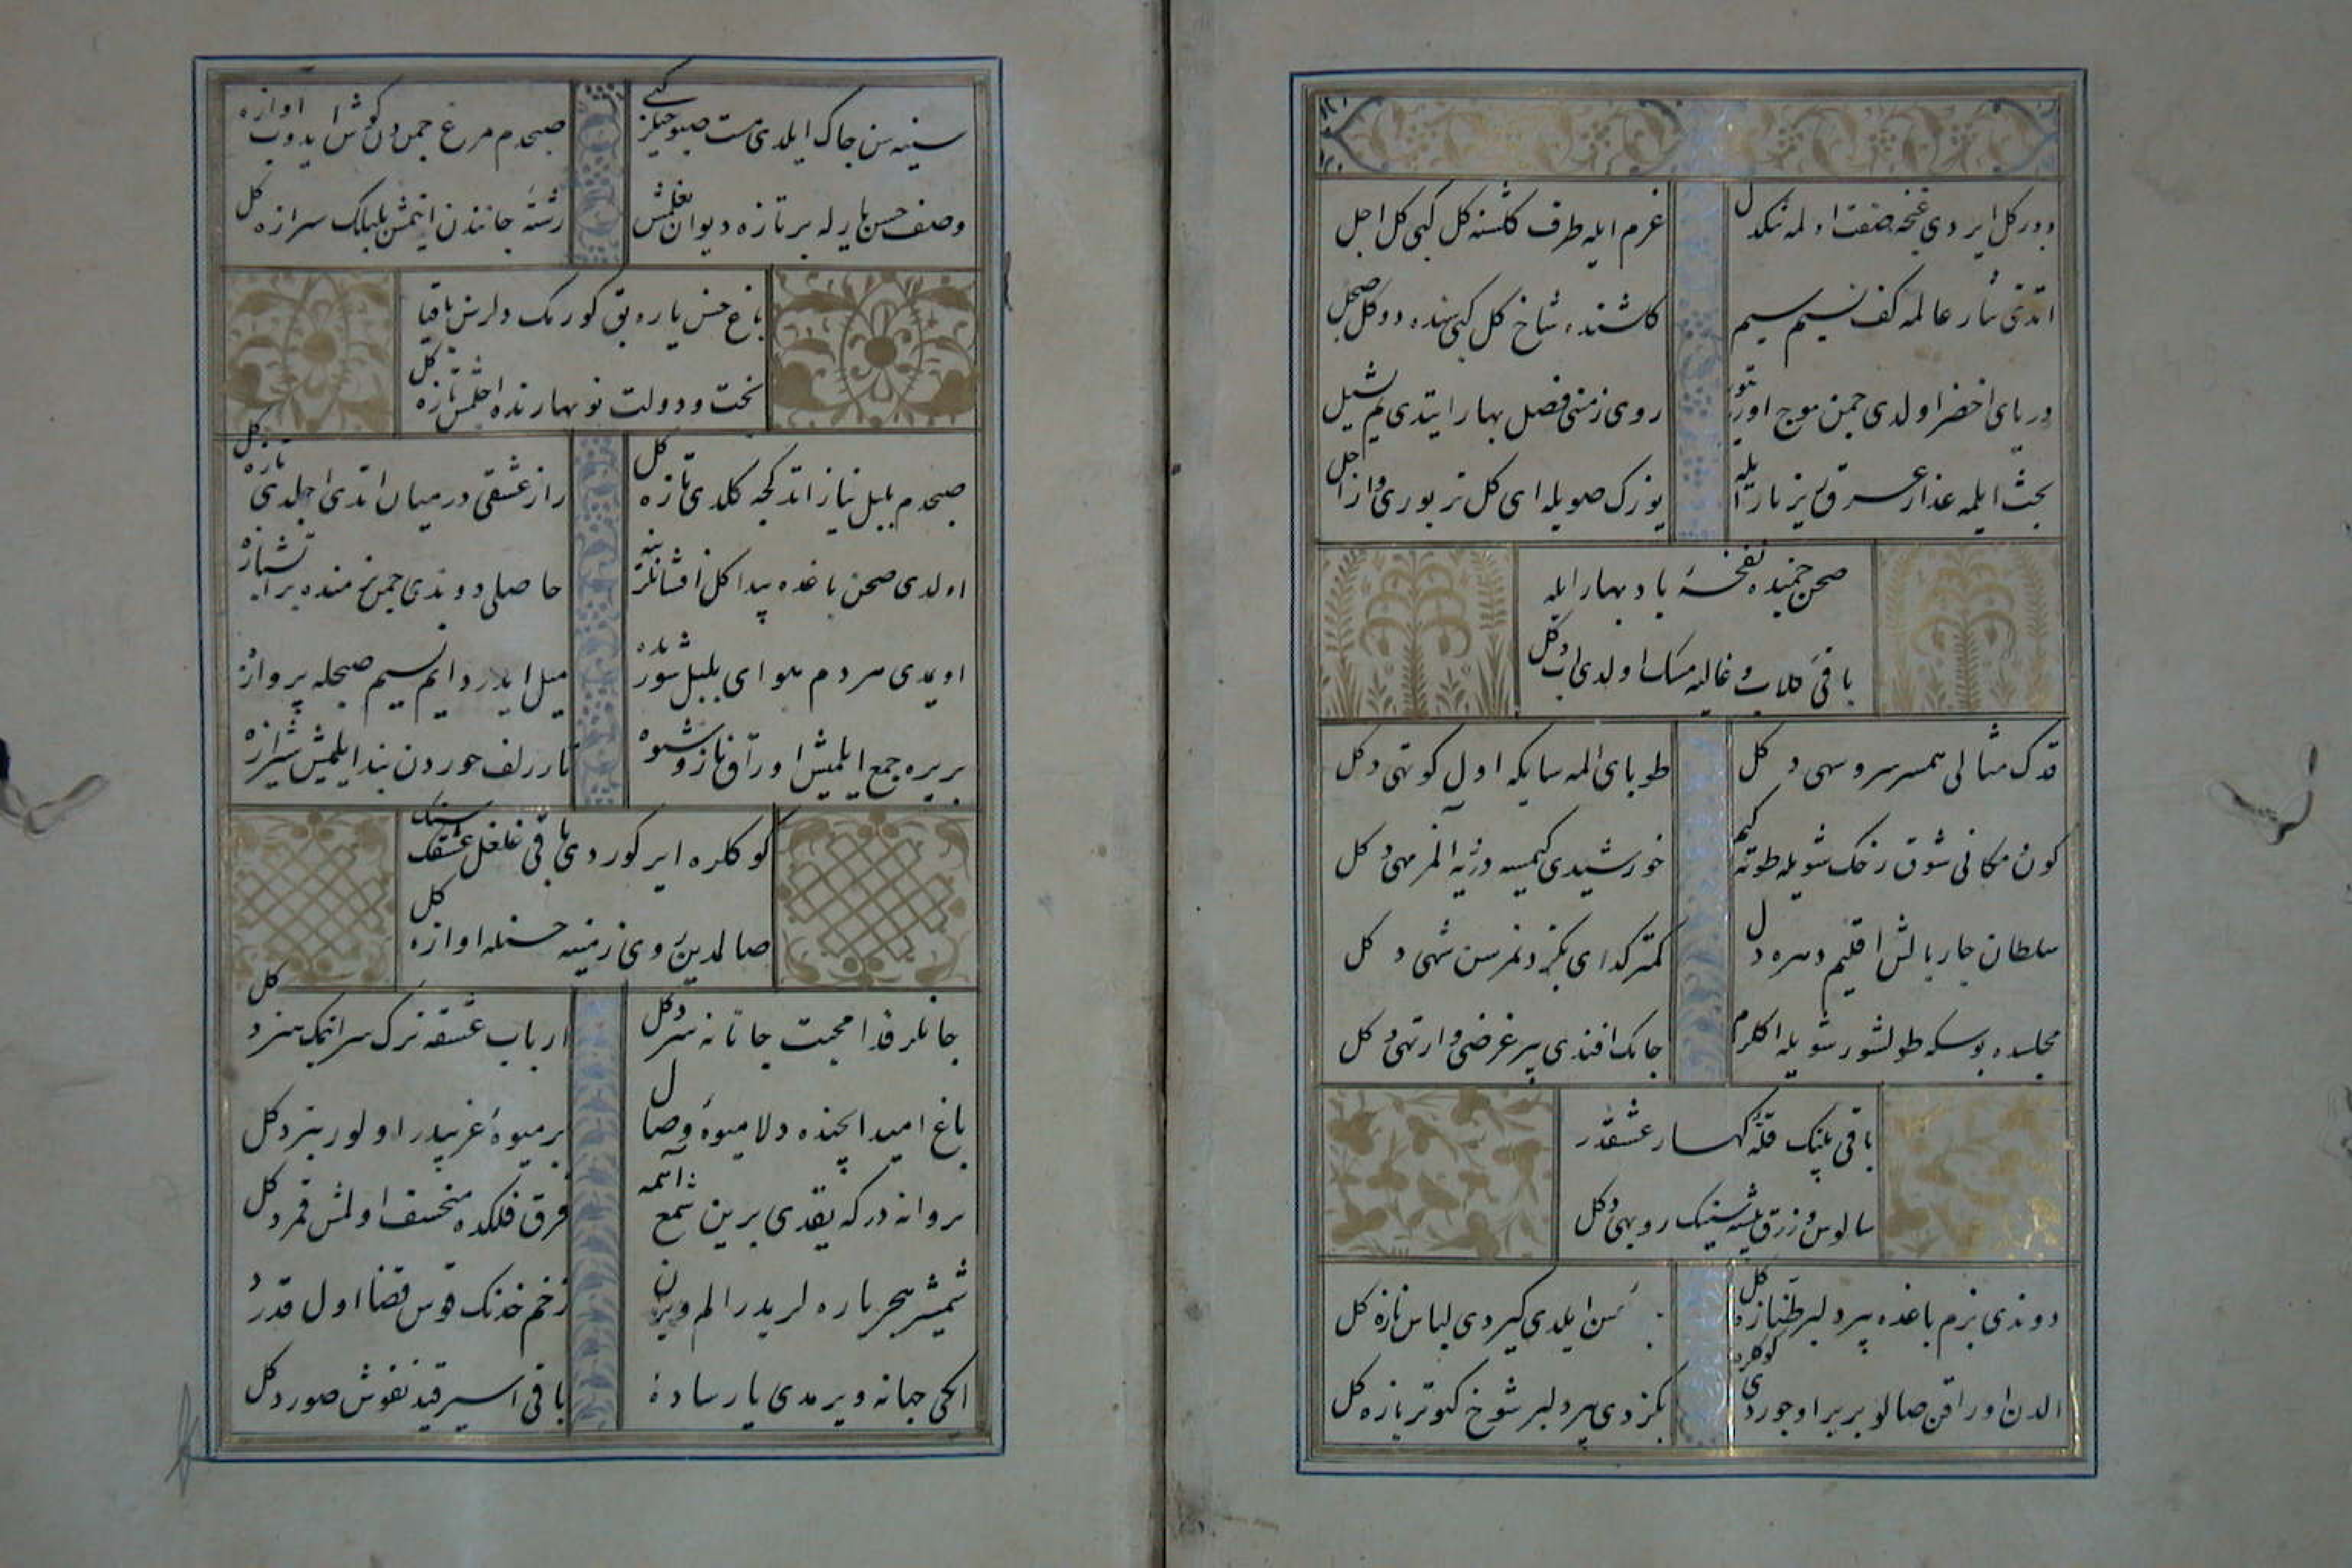 دور کل ایردی غنچه صفت اولمه تنکدل
عزم ایله طرف کلشنه کل کبی کل اجل
اتدی نثار عالمه کف نسیم سیم
کلشنده شاخ کل کبی
دریای اخضر اولدی چمن موج اورر
روی زمینی فصل بهار ایتدی یم یشیل
بحث ایلمه عذار عرق ریز یار ایله
یوزک صویله ای کل تر یوری وار اجل
صحن چمنده نفخهٔ باد بهار ایله
باقی کلاب و غالیه مسک اولدی اب و کل
قدک مثالی همسر سرو سهی دکل
طوبای المه سایکه اول کوتهی دکل
کون و مکانی شوق رخک شویله طوتدی کیم
خورشیدی کیمسه ذرّیه المز مهی دکل
سلطان چار بالش اقلیم دهره دل
کمتر کدای بکزدنمز سن شهی دکل
مجلسده بوسکه طولشور شویله اکلرم
جانک افندی پیر غرضی وار تهی دکل
باقی پلنک قلّهٔ کهسار عشقدر
سالوس و زرق بیشه‌سینک روبهی دکل
دوندی بزم باغده بیر دلبر طنازه کل
ایلدی کیردی لباس نازه کل
الدن اوراقن صالو بریر اوچوردی کوکلره
بکزدی بیر دلبر شوخ کبوتر بازه کل
سینه‌سن چاک ایلدی مست صبوحیلر کبی
صبحدم مرغ چمندن کوش ایدوب اوازه کل
وصف حسن یار له بر تازه دیوان بغلمش
رشتهٔ جانندن ایتمش بلبلک شیرازه کل
باغ حسن یاره بق کور نیک دلرس باقیا
بخت و دولت نوبهارنده اچلمش تازه کل
صبحدم بلبل نیاز اتدکجه کلدی نازه کل
راز عشقی درمیان اتدی اچلدی یاره کل
اولدی صحن باغده پیدا کل افشانلر ینه
حاصلی دوندی چمن بزمنده بر
اویمدی مردم هوای بلبل شوریده
میل ایدر دایم نسیم صبحله پروازه
بریره جمع ایلمیش اوراق ناز و شیوه
تار زلف حوردن بند ایلمیش شیرازه
کوکلره ایر کوردی باقی غلغل عشقک سنک
صالدین روی زمینه حسنله اوازه کل
جانلر فدا محبت جانانه سر دکل
ارباب عشقه ترک سر ایتمک هنر دکل
باغ امید ایچنده دلا میوهٔ وصال
بر میوهٔ غریبدر اولور بتر دکل
پروانه درکه یقدی برین شمع
فرق فلکده منخسف اولمش قمر دکل
شمشیر هجر یاره لریدر الم ویرن
زخم خدنک قوس قضا اول قدر د
الحق جهانه ویرمدی یار ساده
باقی اسیر قید نقوش صور دکل